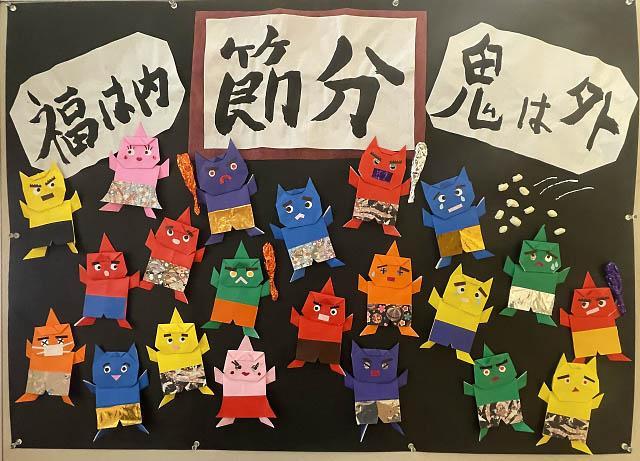 福は内
節分
鬼は外